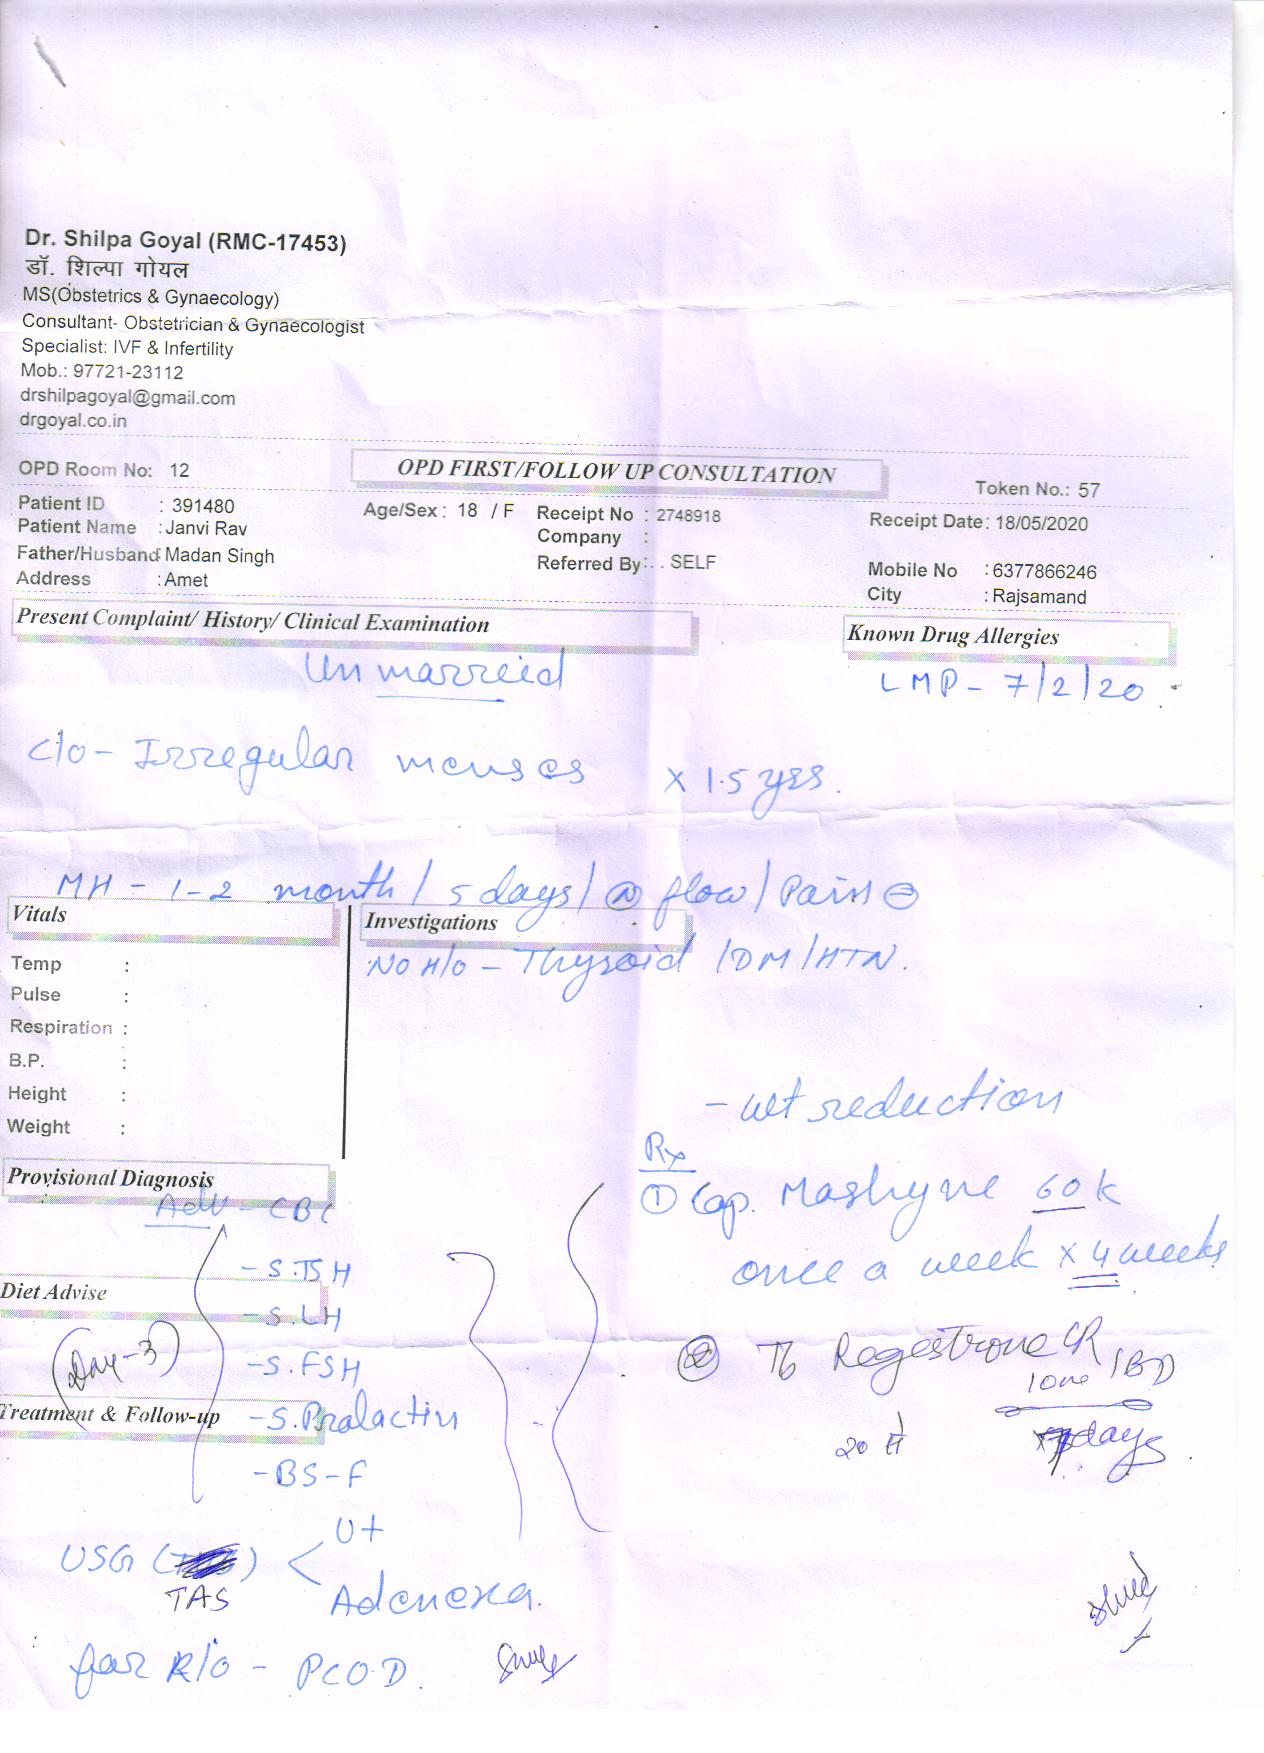 Dr. Shilpa Goyal (RMC-17453)
डॉ. शिल्पा गोयल
MS(Obstetrics & Gynaecology)
Consultant- Obstetrician & Gynaecologist
Specialist: IVF & Infertility
Mob.: 97721-23112
drshilpagoyal@gmail.com
drgoyal.co.in
OPD Room No: 12
OPD FIRST/FOLLOW UP CONSULTATION
Token No.: 57
Patient ID : 391480
Age/Sex : 18 / F
Receipt No : 2748918
Receipt Date: 18/05/2020
Patient Name : Janvi Rav
Company :
Father/Husband: Madan Singh
Referred By:. . SELF
Mobile No : 6377866246
Address : Amet
City : Rajsamand
Present Complaint/ History/ Clinical Examination
Known Drug Allergies
Unmarreid
LMP - 7/2/20.
c/o - Irregular menses x 1.5 yrs.
MH - 1-2 month / 5 days / (N) flow / Pain ⊖
Vitals
Investigations
NO H/O - Thyroid / DM / HTN.
Temp :
Pulse :
Respiration :
B.P. :
Height :
Weight :
- wt reduction
Rx
Provisional Diagnosis
① Cap. Mashyne 60k
once a week x 4 weeks
Adv - CBC
- S.TSH
Diet Advise
- S.LH
(Day-3)
- S.FSH
② Tb Regestrone CR
1BD
Treatment & Follow-up
- S.Prolactin
20
7 days
- BS-F
USG ( ) < Ut
TAS
Adenexa.
for R/O - PCOD